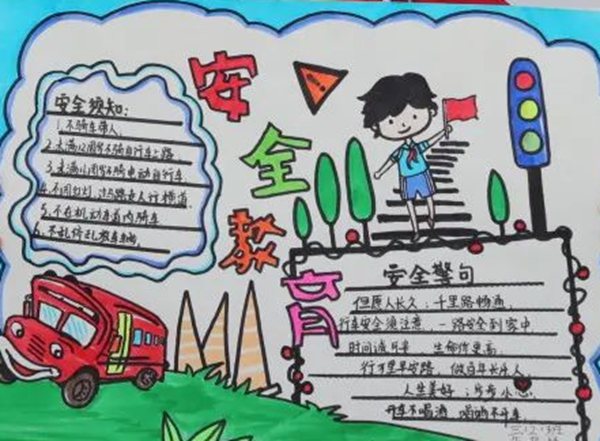 安全教育
安全须知:
1.不骑车带人.
2.未满12周岁不骑自行车上路
3.未满16周岁不骑电动自行车.
4.不闯红灯,过马路走人行横道.
5.不在机动车道内骑车
6.不乱停乱放车辆.
安全警句
但愿人长久;千里路畅通,
行车安全须注意,一路安全到家中
时间诚可贵 生命价更高.
行万里平安路,做百年长乐人.
人生美好;步步小心.
开车不喝酒 喝酒不开车.